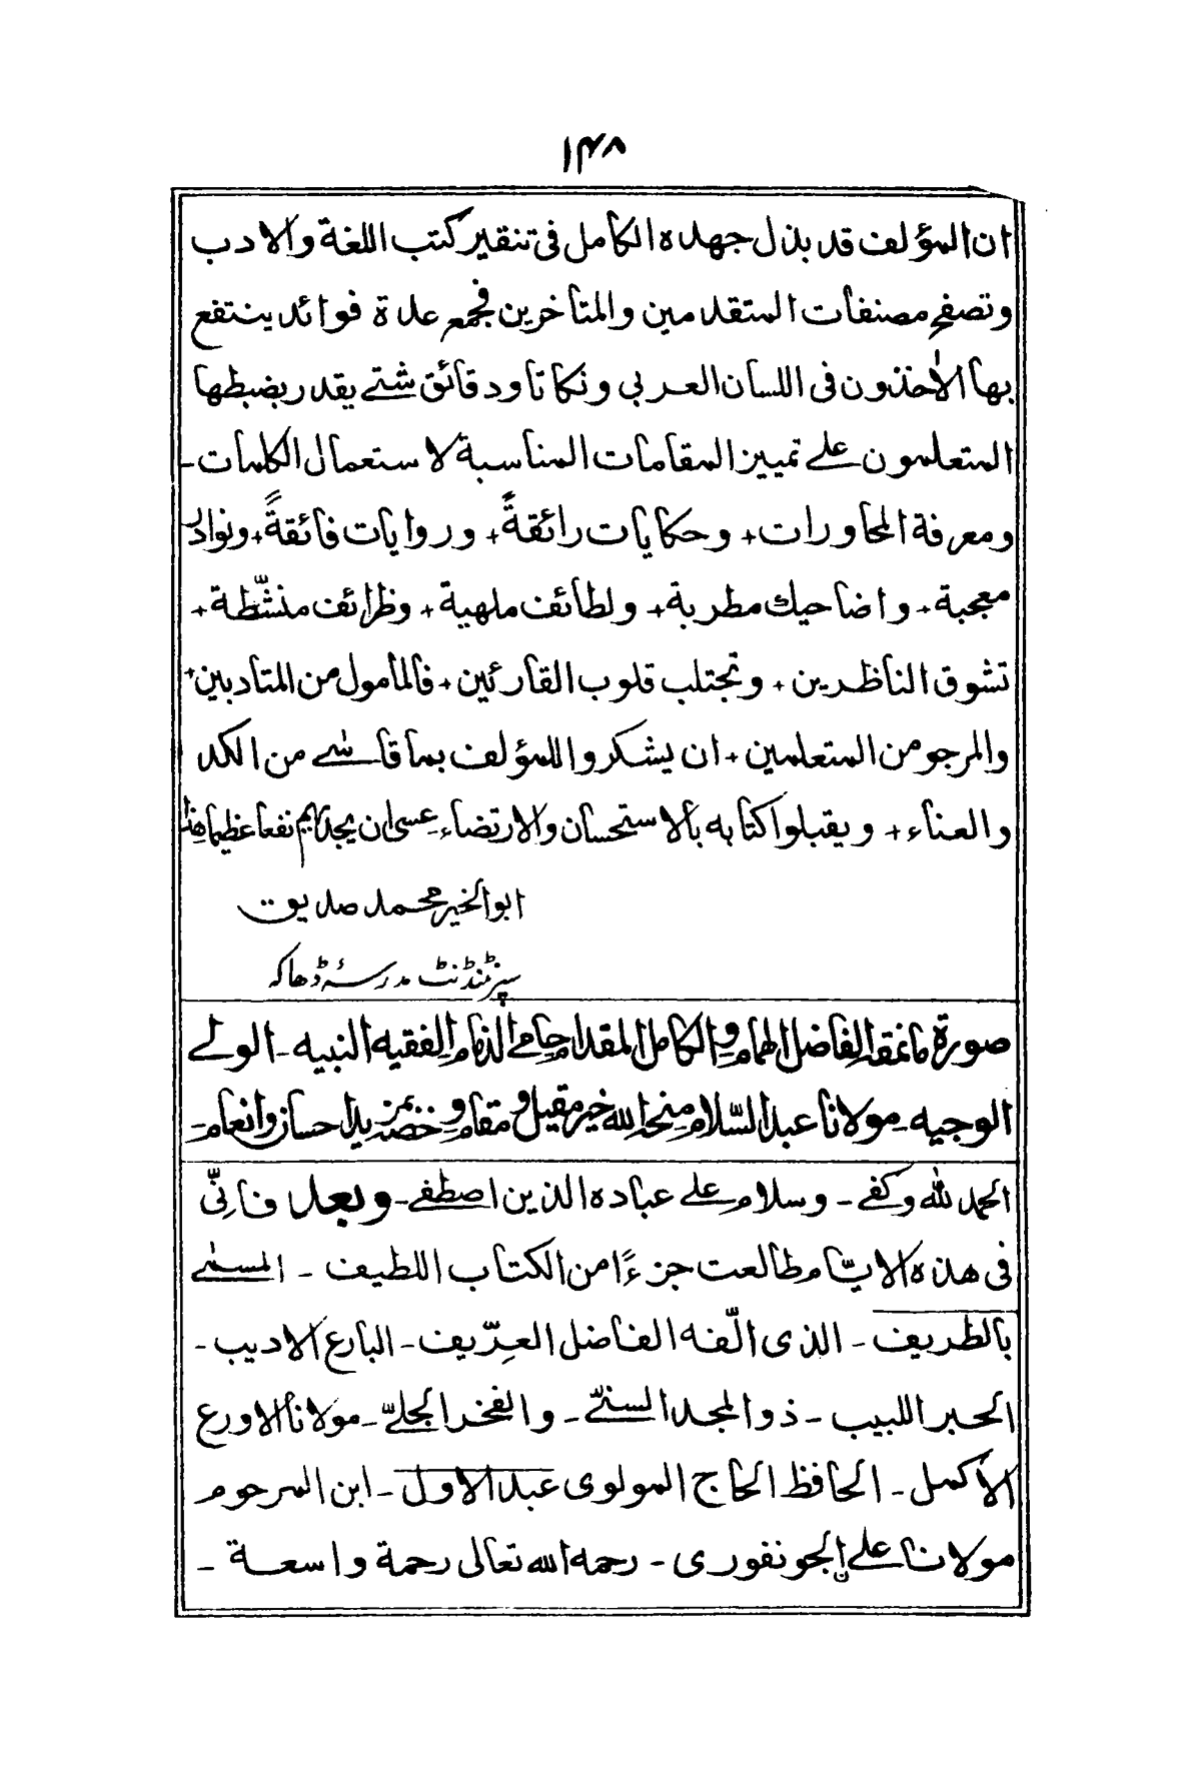 ۱۴۸
ان المؤلف قد بذل جهده الكامل فى تنقير كتب اللغة والادب
وتصفح مصنفات المتقدمين والمتأخرين فجمع عدة فوائد ينتفع
بها الأخذون فى اللسان العربي ونكاتا ودقائق شتے يقدر بضبطها
المتعلمون علے تمييز المقامات المناسبة لاستعمال الكلمات ـ
ومعرفة المحاورات + وحكايات رائقةً + وروايات فائقةً + ونوادر
معجبة + واضاحيك مطربة + ولطائف ملهية + وظرائف منشّطة +
تشوق الناظرين + وتجتلب قلوب القارئين + فالمأمول من المتادبين +
والمرجو من المتعلمين + ان يشكروا للمؤلف بما قاسے من الكد
والعناء + ويقبلوا كتابه بالاستحسان والارتضاء عسى ان يجديهم نفعا عظيما هذا
ابو الخير محمد صديق
سپرنٹنڈنٹ مدرسۂ ڈھاکہ
صورة ما نمقه الفاضل الهمام والكامل المقدام حامے الذمام الفقيه النبيه ـ الولے
الوجيه ـ مولانا عبد السّلام منحه الله خير مقيل ومقام وخصه بمزيد احسان وانعام ـ
الحمد لله وكفے ـ وسلام علے عباده الذين اصطفے ـ وبعد فانّى
فى هذه الايّام طالعت جزءًا من الكتاب اللطيف ـ المسمے
بالطريف ـ الذى الّفه الفاضل العِرّيف ـ البارع الاديب ـ
الحبر اللبيب ـ ذو المجد السنےّ ـ والفخر الجلےّ ـ مولانا الاورع
الأكمل ـ الحافظ الحاج المولوى عبد الاول ـ ابن المرحوم
مولانا علے الجونفورى ـ رحمه الله تعالى رحمة واسعة ـ